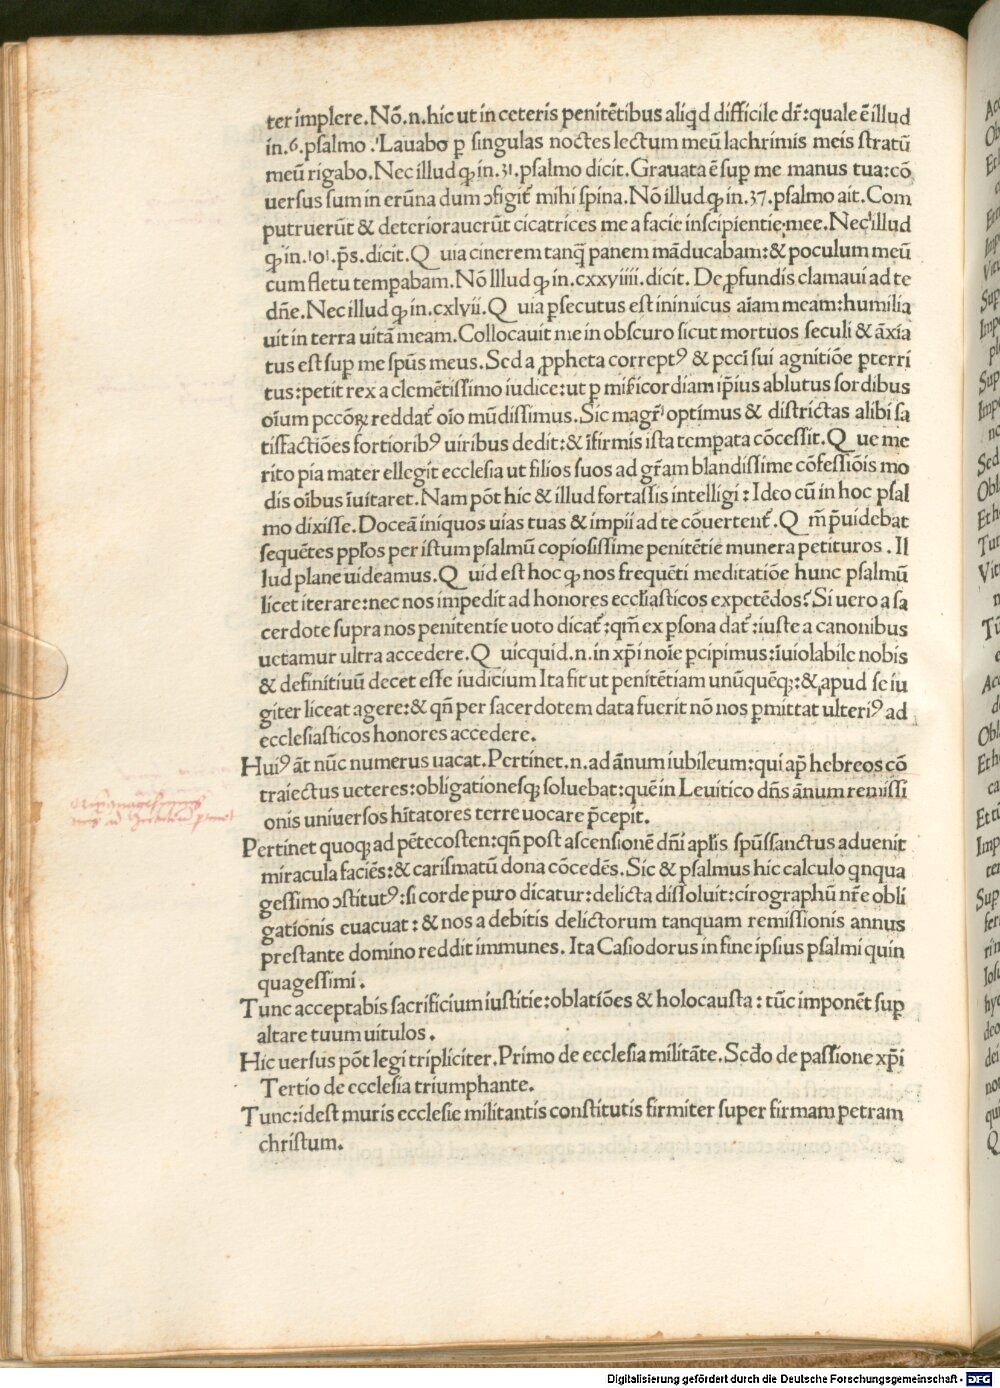 ter implere. Nō.n. hic ut in ceteris penitētibus aliqd difficile dr̄: quale ē illud
in.6.psalmo. Lauabo p singulas noctes lectum meū lachrimis meis stratū
meū rigabo. Nec illud ꝙ in.31.psalmo dicit. Grauata ē sup me manus tua: cō
uersus sum in erūna dum ɔfigit̄ mihi spina. Nō illud ꝙ in.37.psalmo ait. Com
putruerūt & deteriorauerūt cicatrices mee a facie insipientie mee. Nec illud
ꝙ in.101.ps̄. dicit. Q uia cinerem tanq̄ panem māducabam: & poculum meū
cum fletu temꝑabam. Nō Illud ꝙ in.cxxyiiii.dicit. De ꝓfundis clamaui ad te
dn̄e. Nec illud ꝙ in.cxlyii. Q uia ꝑsecutus est inimicus aīam meam: humilia
uit in terra uitā meam. Collocauit me in obscuro sicut mortuos seculi & āxia
tus est suꝑ me sps̄ meus. Sed a ꝓpheta correptꝰ & pcci̅ sui agnitiōe ꝑterri
tus: petit rex a clemētissimo iudice: ut ꝑ mīficordiam ip̄ius ablutus sordibus
oīum pccōꝝ reddat̄ oīo mūdissimus. Sic magr̄ optimus & districtas alibi sa
tisfactiōes fortioribꝰ uiribus dedit: & īfirmis ista temꝑata cōcessit. Q ue me
rito pia mater ellegit ecclesia ut filios suos ad gr̄am blandissime cōfessiōis mo
dis oībus īuitaret. Nam pōt hic & illud fortassis intelligi: Ideo cū in hoc psal
mo dixisse. Doceā iniquos uias tuas & impii ad te cōuertent̄. Q m̄ ꝑuidebat
sequētes pplos per istum psalmū copiosissime penitētie munera petituros. Il
lud plane uideamus. Q uid est hoc ꝙ nos frequēti meditatiōe hunc psalmū
licet iterare: nec nos impedit ad honores eccl̄iasticos expetēdos? Si uero a sa
cerdote supra nos penitentie uoto dicat̄: qm̄ ex ꝑsona dat̄: iuste a canonibus
uetamur ultra accedere. Q uicquid.n. in xp̄i noīe ꝑcipimus: īuiolabile nobis
& definitiuū decet esse iudicium Ita fit ut penitētiam unūquēqꝫ: & apud se iu
giter liceat agere: & qn̄ per sacerdotem data fuerit nō nos ꝑmittat ulteriꝰ ad
ecclesiasticos honores accedere.
Huiꝰ āt nūc numerus uacat. Pertinet.n. ad ānum iubileum: qui ap̄ hebreos cō
traiectus ueteres: obligationesqꝫ soluebat: quē in Leuitico dn̄s ānum remissi
onis uniuersos hītatores terre uocare p̄cepit.
Pertinet quoqꝫ ad pētecosten: qn̄ post ascensionē dn̄i apl̄is spūssanctus aduenit
miracula faciēs: & carismatū dona cōcedēs. Sic & psalmus hic calculo qnqua
gessimo ɔstitutꝰ: si corde puro dicatur: delicta dissoluit: cirographū nr̄e obli
gationis euacuat: & nos a debitis delictorum tanquam remissionis annus
prestante domino reddit immunes. Ita Casiodorus in fine ipsius psalmi quin
quagessimi.
Tunc acceptabis sacrificium iustitie: oblatiōes & holocausta: tūc imponēt suꝑ
altare tuum uitulos.
Hic uersus pōt legi tripliciter. Primo de ecclesia militāte. Scd̄o de passione xp̄i
Tertio de ecclesia triumphante.
Tunc: idest muris ecclesie militantis constitutis firmiter super firmam petram
christum.
Digitalisierung gefördert durch die Deutsche Forschungsgemeinschaft - DFG